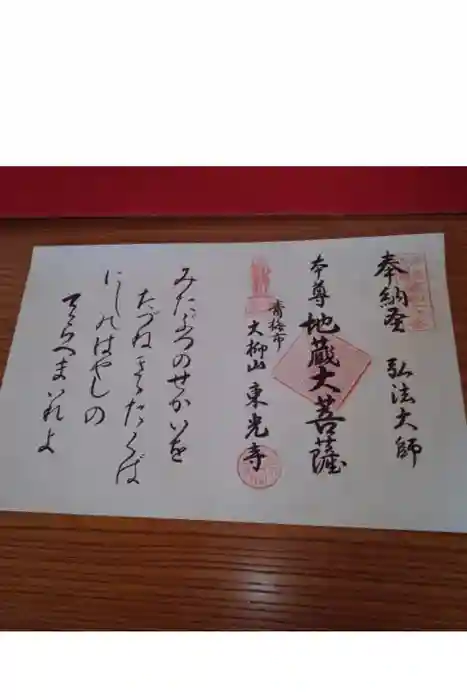 奉納経 弘法大師
本尊 地蔵大菩薩
青梅市
大柳山 東光寺
みだぶつのせかいを
たづねきたくば
にしのはやしの
てらへまいれよ